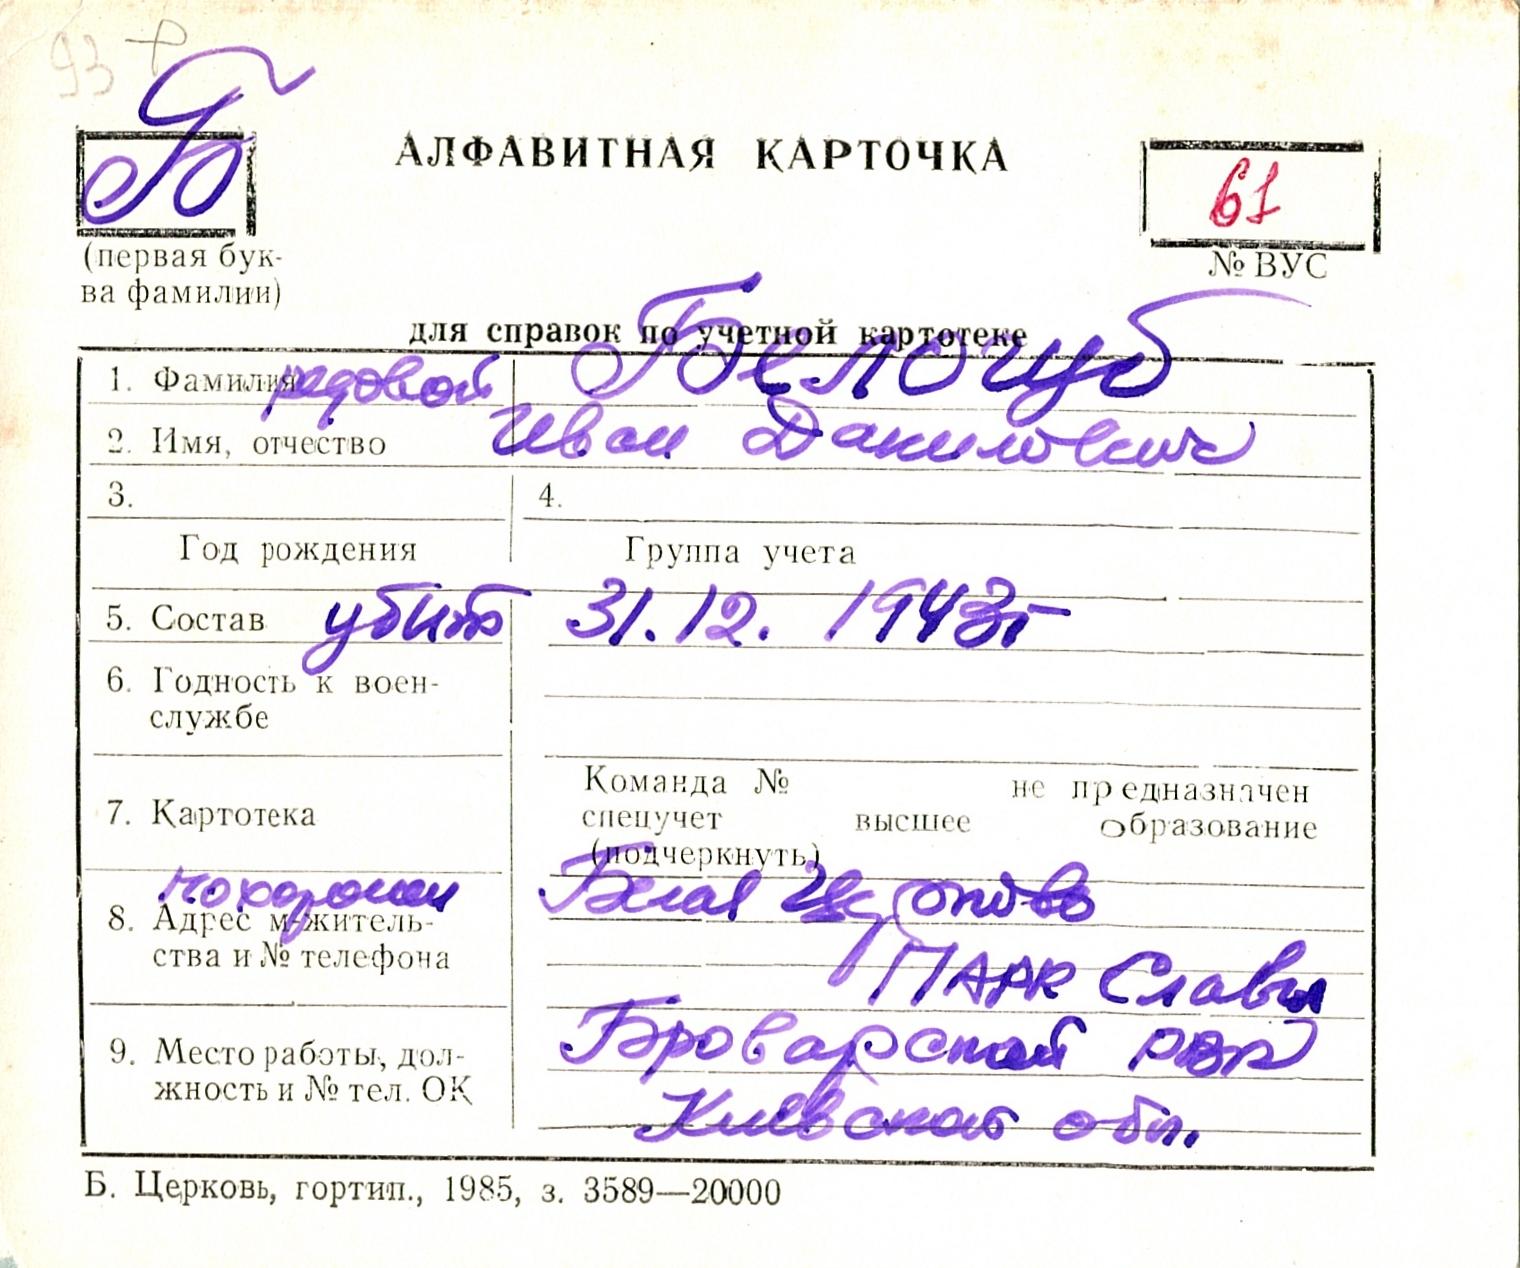 93
Б
АЛФАВИТНАЯ КАРТОЧКА
61
(первая бук-
ва фамилии)
№ ВУС
для справок по учетной картотеке
1. Фамилия рядовой Белоцуб
2. Имя, отчество Иван Данилович
3. 4.
Год рождения Группа учета
5. Состав убит 31.12.1943г
6. Годность к воен-
службе
Команда № не предназначен
7. Картотека спецучет высшее образование
(подчеркнуть)
похоронен Белая Церковь
8. Адрес м-житель-
ства и № телефона
ПАРК Славы
Броварской РВК
9. Место работы, дол-
жность и № тел. ОК
Киевской обл.
Б. Церковь, гортип., 1985, з. 3589—20000